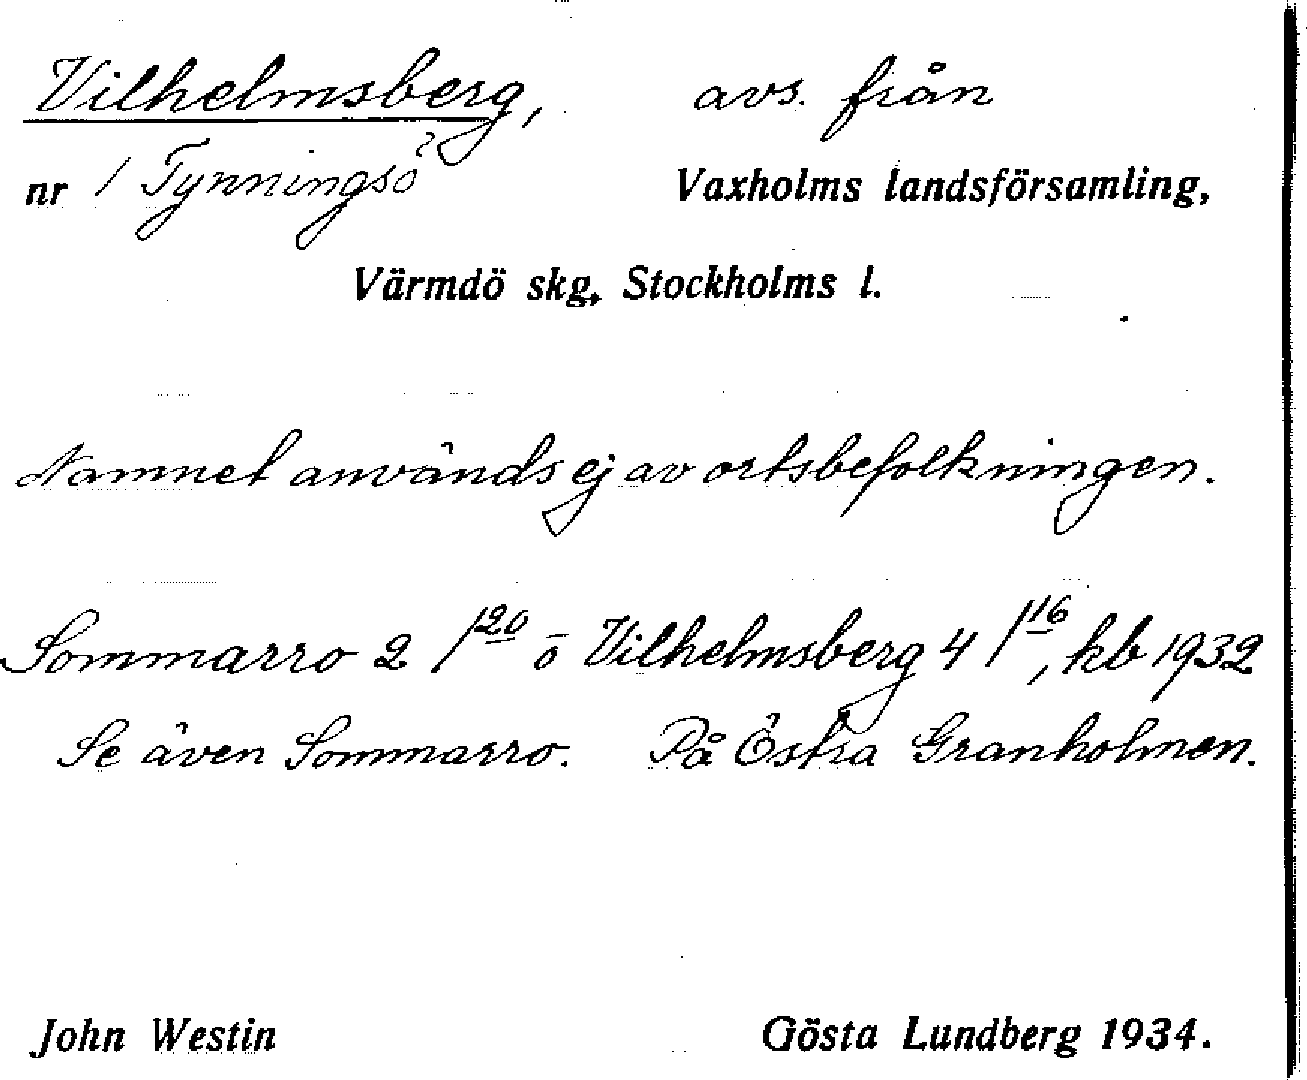 Vilhelmsberg, avs. från
nr 1 Tynningsö Vaxholms landsförsamling,
Värmdö skg, Stockholms l.
Namnet används ej av ortsbefolkningen.
Sommarro 2 1/20 o Vilhelmsberg 4 1/16, kb 1932
Se även Sommarro. På Östra Granholmen.
John Westin Gösta Lundberg 1934.